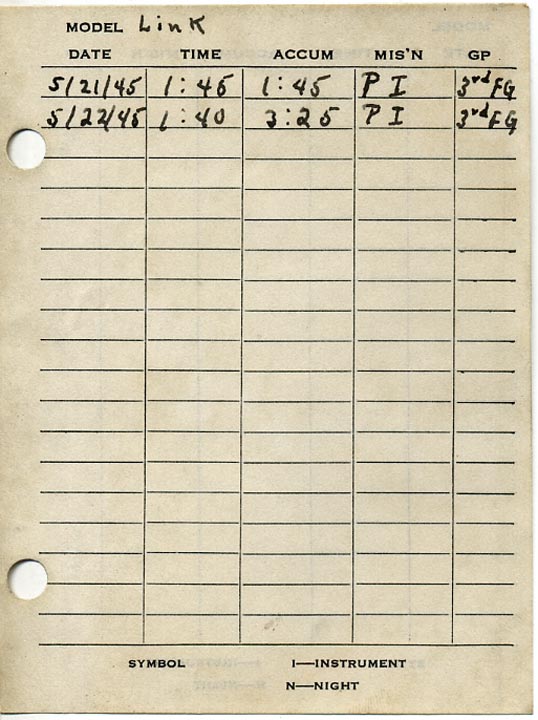 MODEL Link
DATE TIME ACCUM MIS'N GP
5/21/45 1:45 1:45 P I 3rd FG
5/22/45 1:40 3:25 P I 3rd FG
SYMBOL I—INSTRUMENT
N—NIGHT